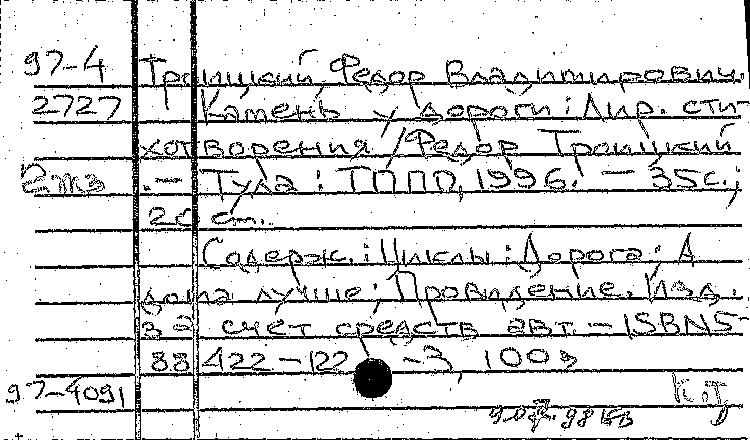 97-4 Троицкий, Федор Владимирович.
2727 Камень у дороги: Лир. сти-
хотворения / Федор Троицкий
2жэ .— Тула : ТППО, 1996. — 35с.;
20 см.
Содерж.: Циклы: Дорога; А
дома лучше; Провидение. Изд.
за счет средств авт. — ISBN5-
88422-122-3, 100э
97-4091 К.Т